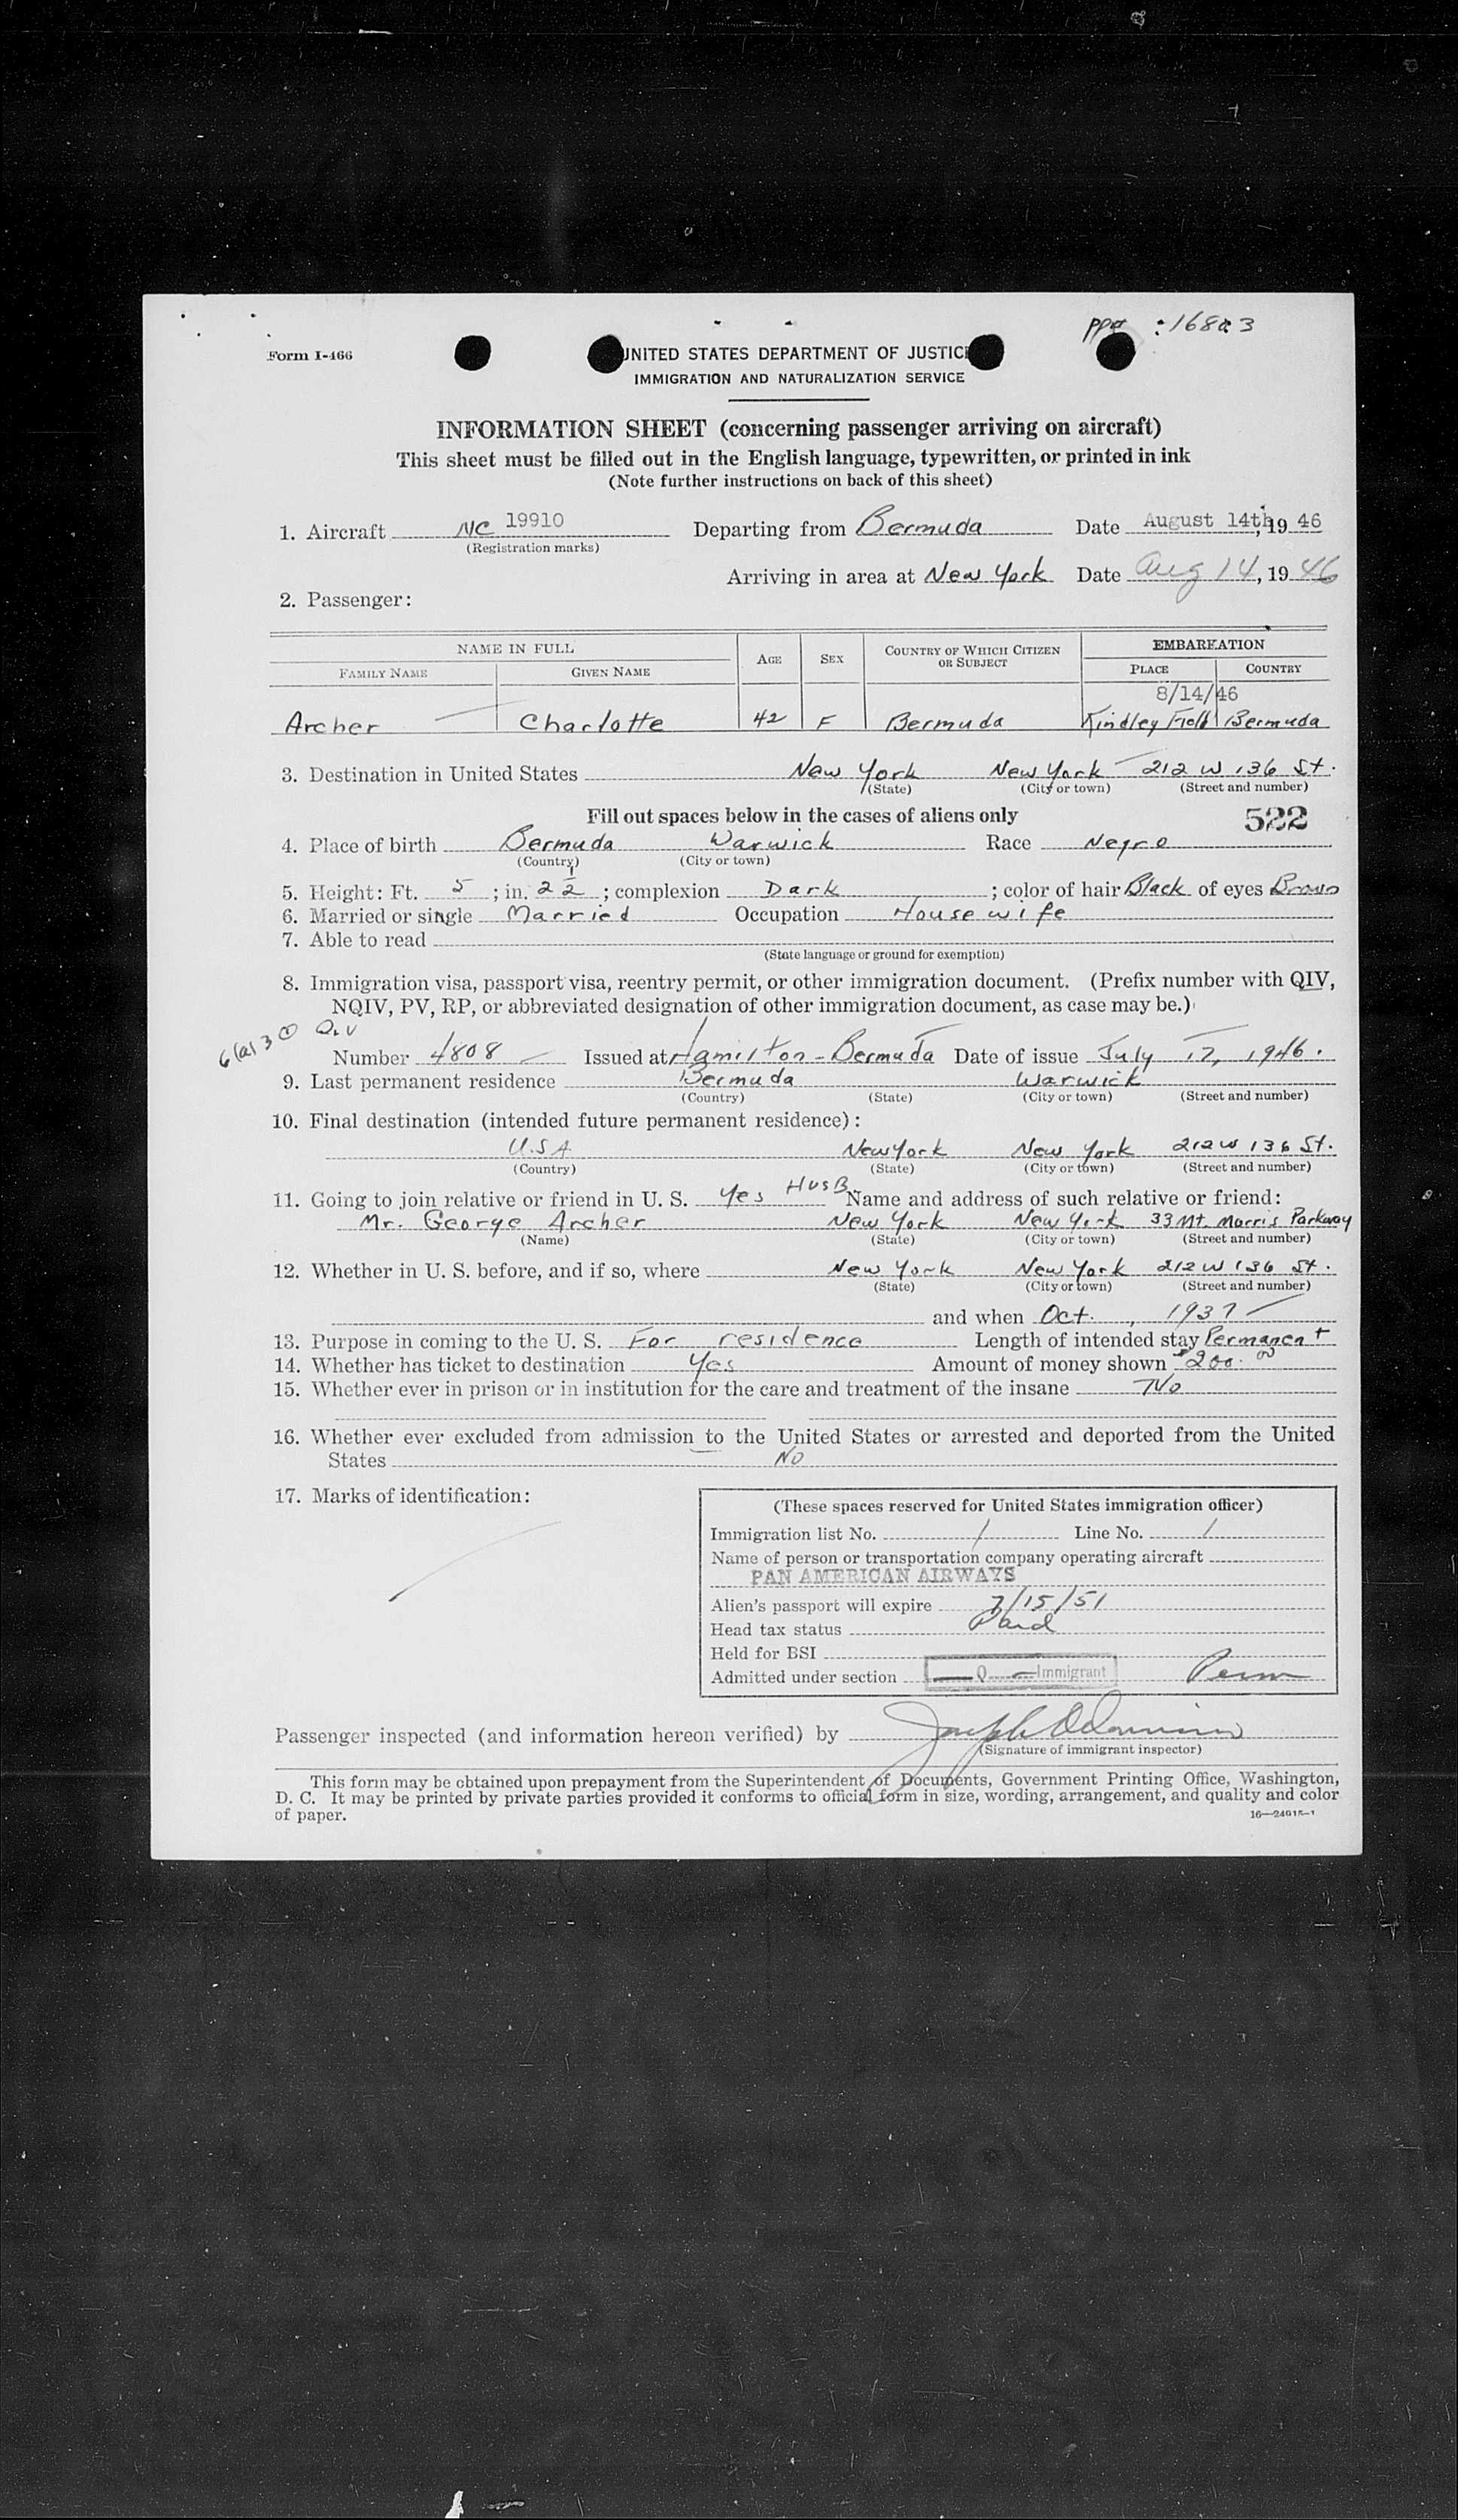 Form I-466
UNITED STATES DEPARTMENT OF JUSTICE
IMMIGRATION AND NATURALIZATION SERVICE
INFORMATION SHEET (concerning passenger arriving on aircraft)
This sheet must be filled out in the English language, typewritten, or printed in ink
(Note further instructions on back of this sheet)
1. Aircraft NC 19910 Departing from Bermuda Date August 14th, 19 46
(Registration marks)
Arriving in area at New York Date Aug 14, 19 46
2. Passenger:
NAME IN FULL AGE SEX COUNTRY OF WHICH CITIZEN OR SUBJECT EMBARKATION
FAMILY NAME GIVEN NAME PLACE COUNTRY
8/14/46
Archer Charlotte 42 F Bermuda Kindley Field Bermuda
3. Destination in United States New York New York 212 W 136 St.
(State) (City or town) (Street and number)
Fill out spaces below in the cases of aliens only 522
4. Place of birth Bermuda Warwick Race Negro
(Country) (City or town)
5. Height: Ft. 5 ; in. 2 1/2 ; complexion Dark ; color of hair Black of eyes Brown
6. Married or single Married Occupation House wife
7. Able to read
(State language or ground for exemption)
8. Immigration visa, passport visa, reentry permit, or other immigration document. (Prefix number with QIV,
NQIV, PV, RP, or abbreviated designation of other immigration document, as case may be.)
6(a)3 QIV
Number 4808 Issued at Hamilton-Bermuda Date of issue July 17, 1946.
9. Last permanent residence Bermuda Warwick
(Country) (State) (City or town) (Street and number)
10. Final destination (intended future permanent residence):
U.S A New York New York 212 W 136 St.
(Country) (State) (City or town) (Street and number)
11. Going to join relative or friend in U. S. Yes HUSB Name and address of such relative or friend:
Mr. George Archer New York New York 33 Mt. Morris Parkway
(Name) (State) (City or town) (Street and number)
12. Whether in U. S. before, and if so, where New York New York 212 W 136 St.
(State) (City or town) (Street and number)
and when Oct. , 1937
13. Purpose in coming to the U. S. For residence Length of intended stay Permanent
14. Whether has ticket to destination Yes Amount of money shown $200.00
15. Whether ever in prison or in institution for the care and treatment of the insane No
16. Whether ever excluded from admission to the United States or arrested and deported from the United
States No
17. Marks of identification:
(These spaces reserved for United States immigration officer)
Immigration list No. 1 Line No. 1
Name of person or transportation company operating aircraft
PAN AMERICAN AIRWAYS
Alien's passport will expire 7/15/51
Head tax status Paid
Held for BSI
Admitted under section Q Immigrant Perm
Passenger inspected (and information hereon verified) by
(Signature of immigrant inspector)
This form may be obtained upon prepayment from the Superintendent of Documents, Government Printing Office, Washington,
D. C. It may be printed by private parties provided it conforms to official form in size, wording, arrangement, and quality and color
of paper.